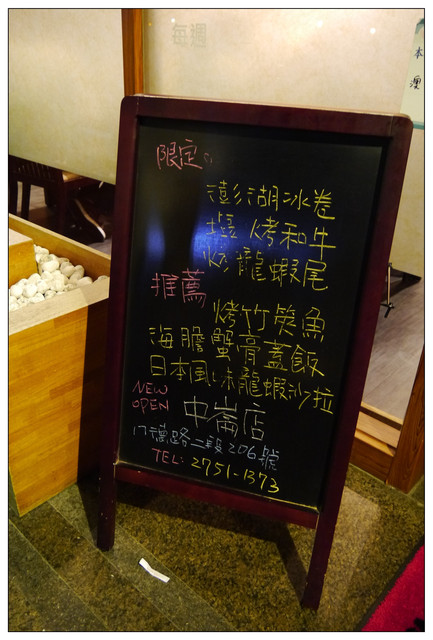 每週
本
限定
澎湖冰卷
塩烤和牛
炒龍蝦尾
推薦
烤竹筴魚
海膽蟹膏蓋飯
日本風味龍蝦沙拉
NEW
OPEN
中崙店
八德路二段206號
TEL: 2751-1373